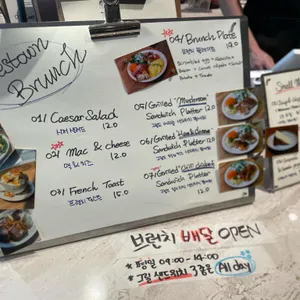 Brunch
01/ Caesar Salad
시저 샐러드 12.0
02/ Mac & cheese
맥 & 치즈 12.0
03/ French Toast
프렌치 토스트 15.0
04/ Brunch Plate
브런치 플레이트 12.0
05/ Grilled "Mushroom"
Sandwich Platter
12.0
06/ Grilled
Sandwich Platter
12.0
07/ Grilled
Sandwich Platter
12.0
Small
브런치 배달 OPEN
* 평일 09:00 - 14:00
* 그릴 샌드위치 3종은 All day